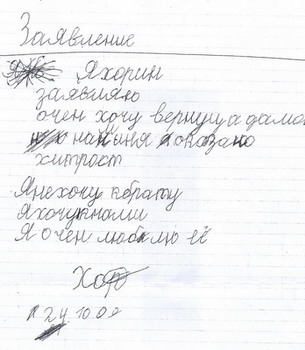 Заявление
Я хорин
заявляю
очен хочу вернуца дамо
на
хитрост
Я не хочу к брату
Я хочу к нами
Я очен люблю её
Хор
24.10.0